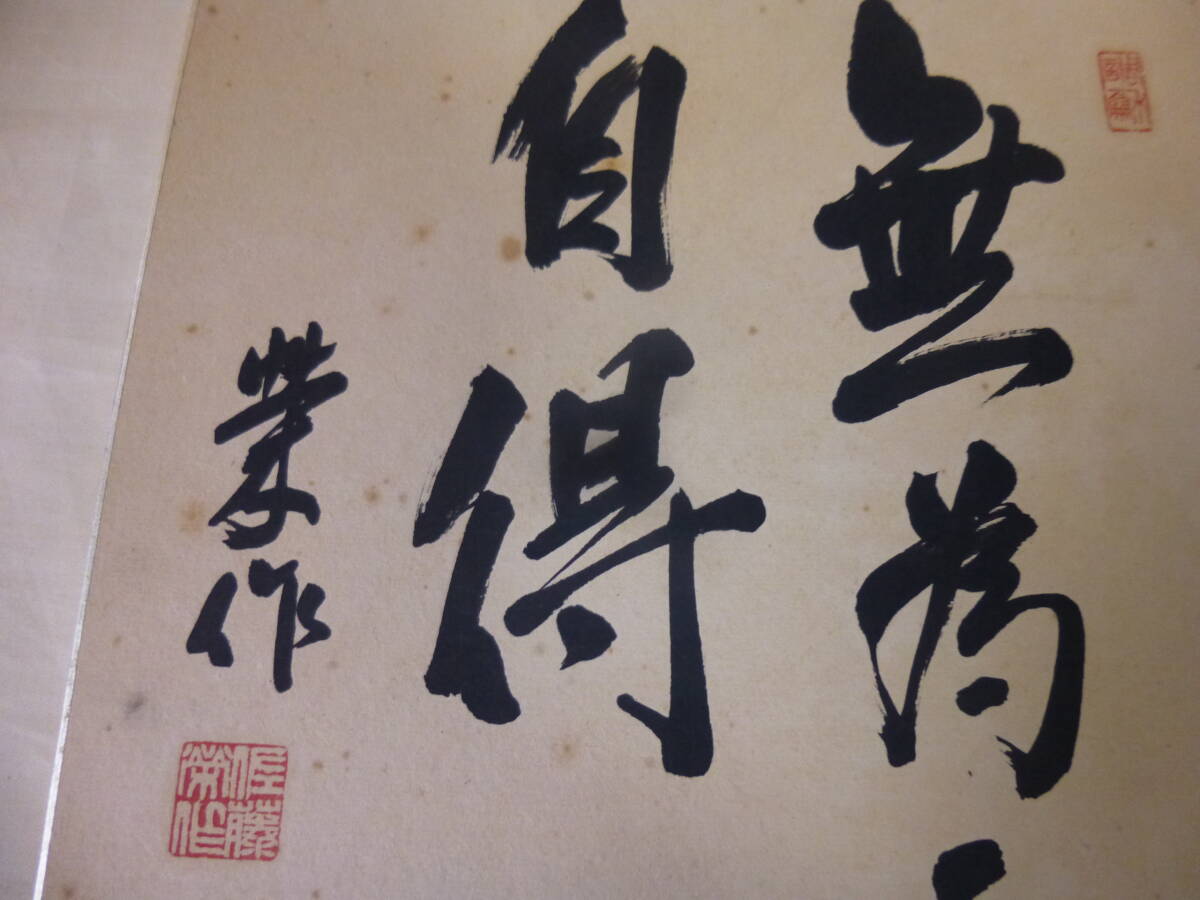 無為
自得
榮作
佐藤
榮作